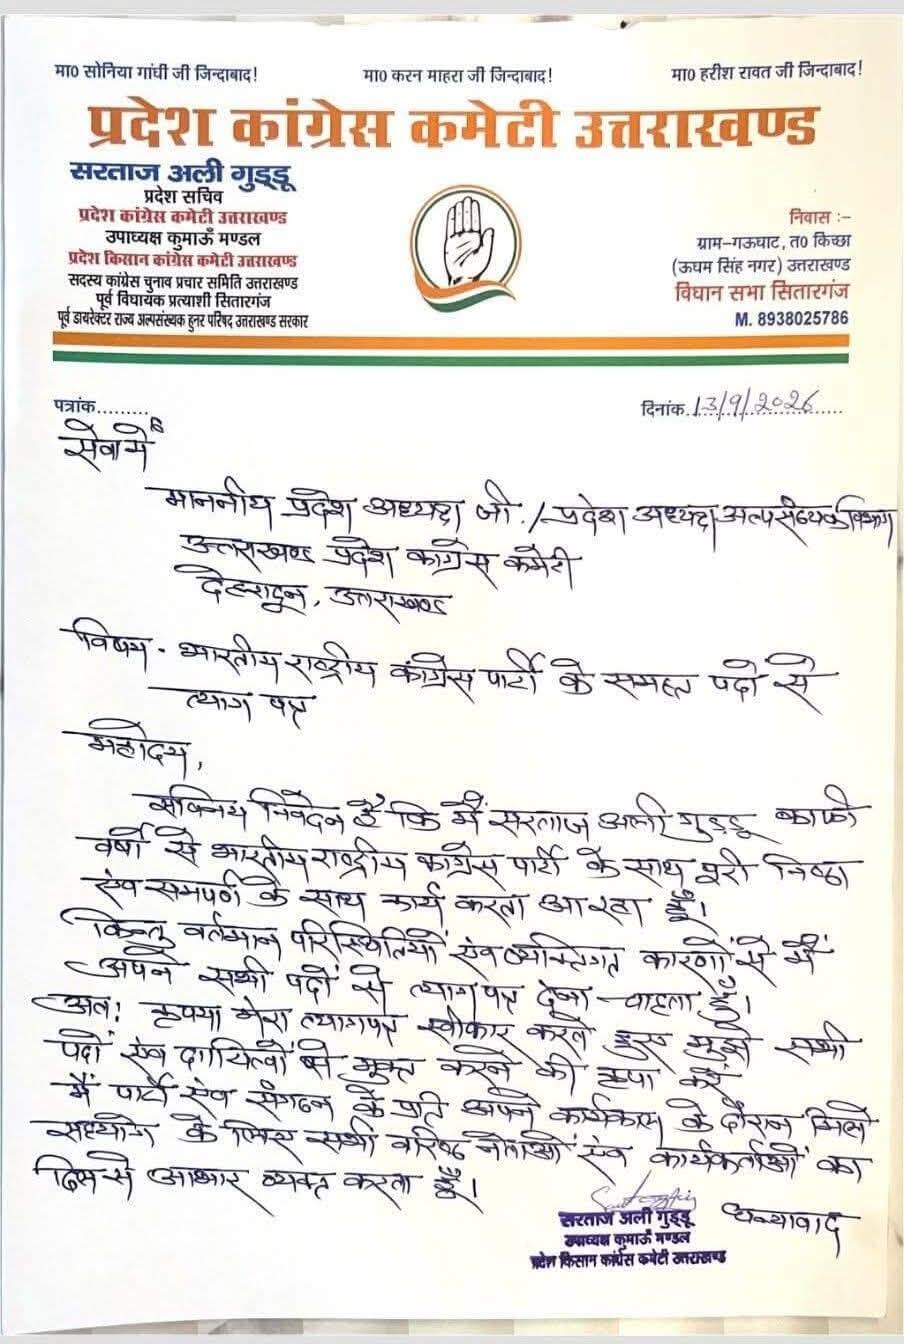 मा0 सोनिया गांधी जी जिन्दाबाद! मा0 करन माहरा जी जिन्दाबाद! मा0 हरीश रावत जी जिन्दाबाद!
प्रदेश कांग्रेस कमेटी उत्तराखण्ड
सरताज अली गुड्डू
प्रदेश सचिव
प्रदेश कांग्रेस कमेटी उत्तराखण्ड
उपाध्यक्ष कुमाऊँ मण्डल
प्रदेश किसान कांग्रेस कमेटी उत्तराखण्ड
सदस्य कांग्रेस चुनाव प्रचार समिति उत्तराखण्ड
पूर्व विधायक प्रत्याशी सितारगंज
पूर्व डायरेक्टर राज्य अल्पसंख्यक हुनर परिषद उत्तराखण्ड सरकार
निवास :-
ग्राम-गऊघाट, त0 किच्छा
(ऊधम सिंह नगर) उत्तराखण्ड
विधान सभा सितारगंज
M. 8938025786
पत्रांक......... दिनांक 13/9/2026
सेवा में
माननीय प्रदेश अध्यक्ष जी./प्रदेश अध्यक्ष अल्पसंख्यक विभाग
उत्तराखण्ड प्रदेश कांग्रेस कमेटी
देहरादून, उत्तराखण्ड
विषय - भारतीय राष्ट्रीय कांग्रेस पार्टी के समस्त पदों से
त्याग पत्र
महोदय,
सविनय निवेदन है कि मैं सरताज अली गुड्डू काफी
वर्षों से भारतीय राष्ट्रीय कांग्रेस पार्टी के साथ पूरी निष्ठा
एंव समर्पण के साथ कार्य करता आ रहा हूँ।
किन्तु वर्तमान परिस्थितियों एंव व्यक्तिगत कारणों से मैं
अपने सभी पदों से त्यागपत्र देना चाहता हूँ।
अत: कृपया मेरा त्यागपत्र स्वीकार करते हुए मुझे सभी
पदों एंव दायित्वों से मुक्त करने की कृपा करें
मैं पार्टी एंव संगठन के प्रति अपने कार्यकाल के दौरान मिले
सहयोग के लिए सभी वरिष्ठ नेताओं एंव कार्यकर्ताओं का
दिल से आभार व्यक्त करता हूँ।
धन्यवाद
सरताज अली गुड्डू
उपाध्यक्ष कुमाऊँ मण्डल
प्रदेश किसान कांग्रेस कमेटी उत्तराखण्ड